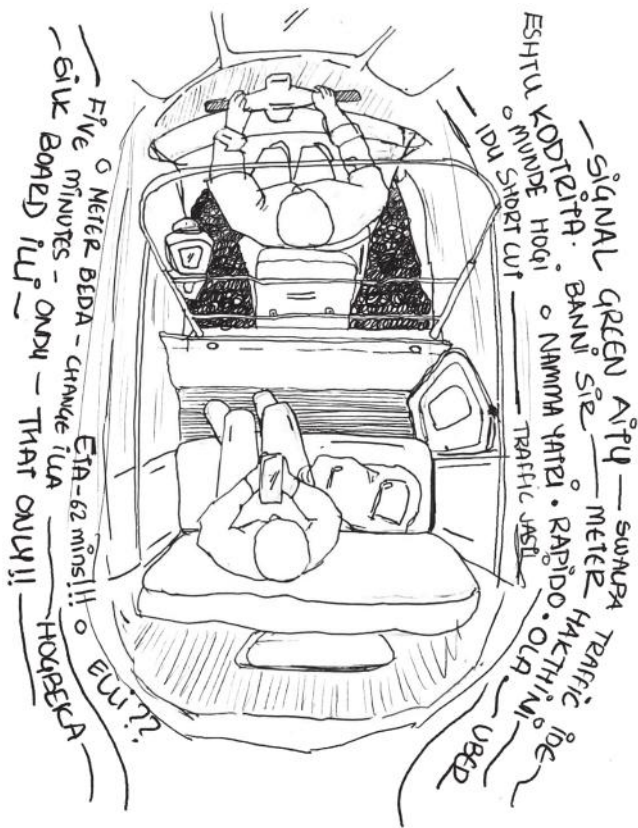 — SIGNAL GREEN AITU — SWALPA TRAFFIC IDE ~
ESHTU KODTRITA. BANNI SIR — METER HAKTHINI —
○ MUNDE HOGI ○ NAMMA YATRI • RAPIDO • OLA — UBER
— IDU SHORT CUT — TRAFFIC JASTI
ETA-62 mins!!! ○ ELLI??
○ METER BEDA - CHANGE ILLA
— FIVE MINUTES - ONDU — THAT ONLY!! — HOGBEKA
— SILK BOARD ILLI ~